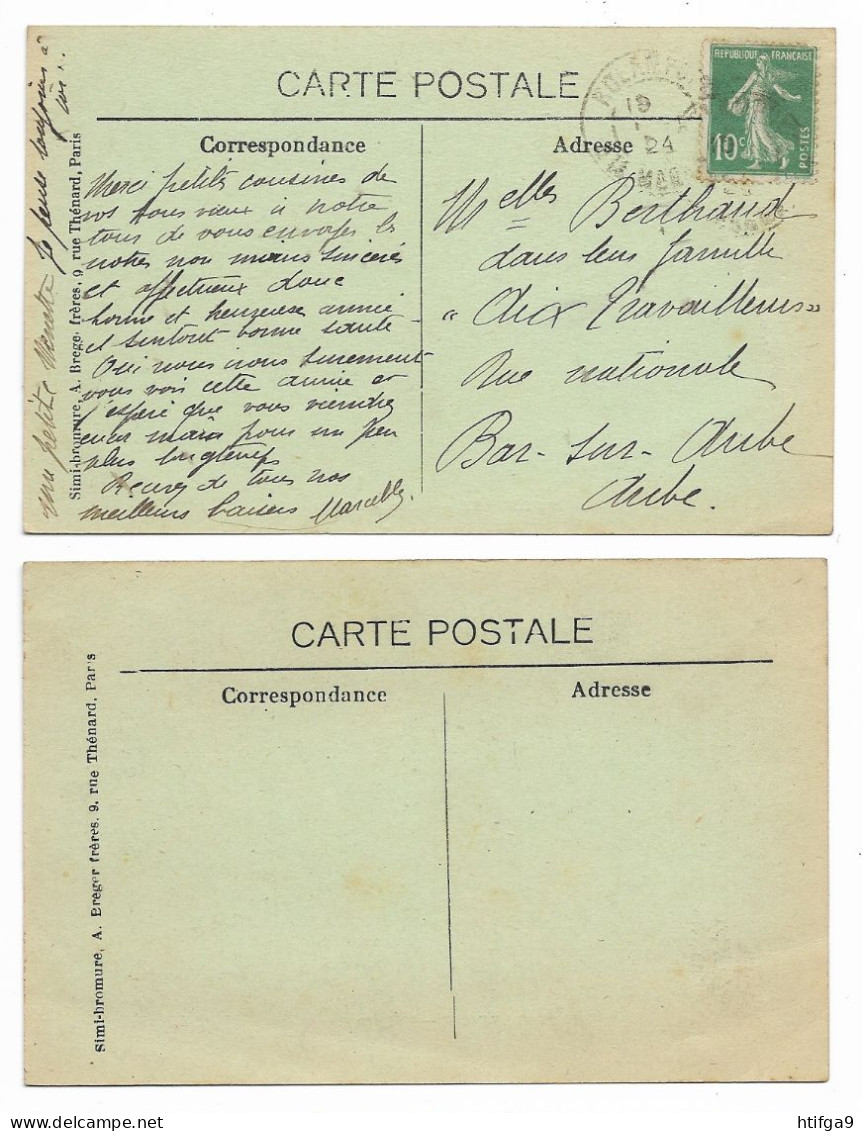 CARTE POSTALE
Correspondance
Adresse
REPUBLIQUE FRANÇAISE
10c
POSTES
19
24
Simi-bromure, A. Breger frères, 9, rue Thénard, Paris
Merci petites cousines de
vos bons vœux à notre
tour de vous envoyer les
notres non moins sincères
et affectueux donc
bonne et heureuse année
et surtout bonne santé
Oui nous nous surement
vous voir cette année et
j'espère que vous viendrez
pour un peu
plus longtemps
Recevez de tous nos
meilleurs baisers Marcelle.
ma petite Je pense toujours à
toi...
Melles Berthaud
dans leur famille
"Aux Travailleurs"
Rue nationale
Bar-sur-Aube
Aube.
CARTE POSTALE
Correspondance
Adresse
Simi-bromure, A. Breger frères, 9, rue Thénard, Paris
htifga9